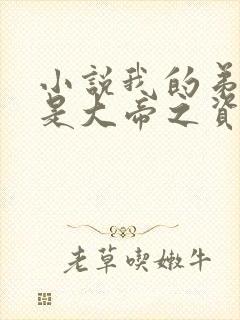 小説我的弟
是大帝之資
老草喫嫩牛